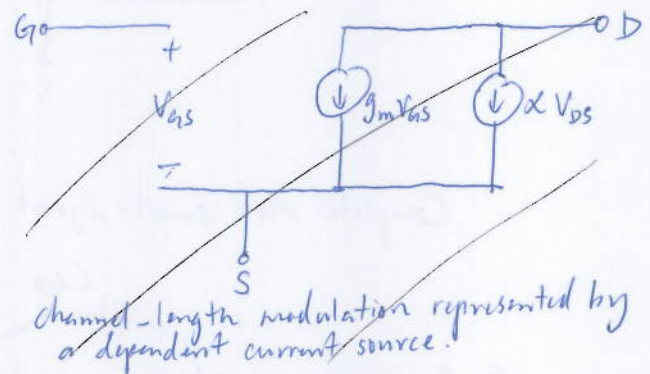 G
D
+
V_GS
g_m V_GS
∝ V_DS
-
S
channel-length modulation represented by
a dependent current source.